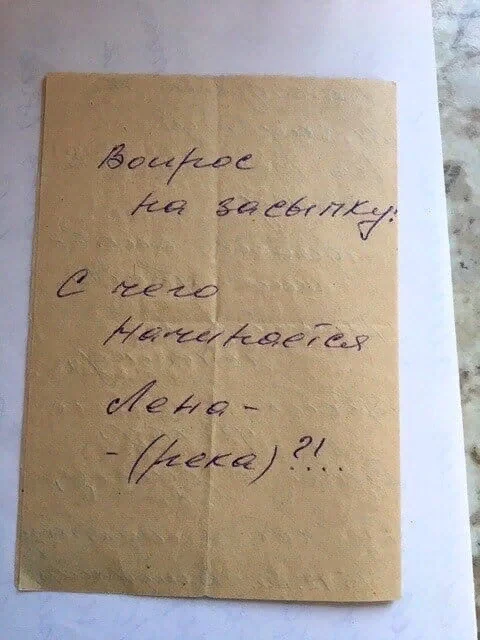 Вопрос
на засыпку:
С чего
начинается
Лена -
- (река)?!....